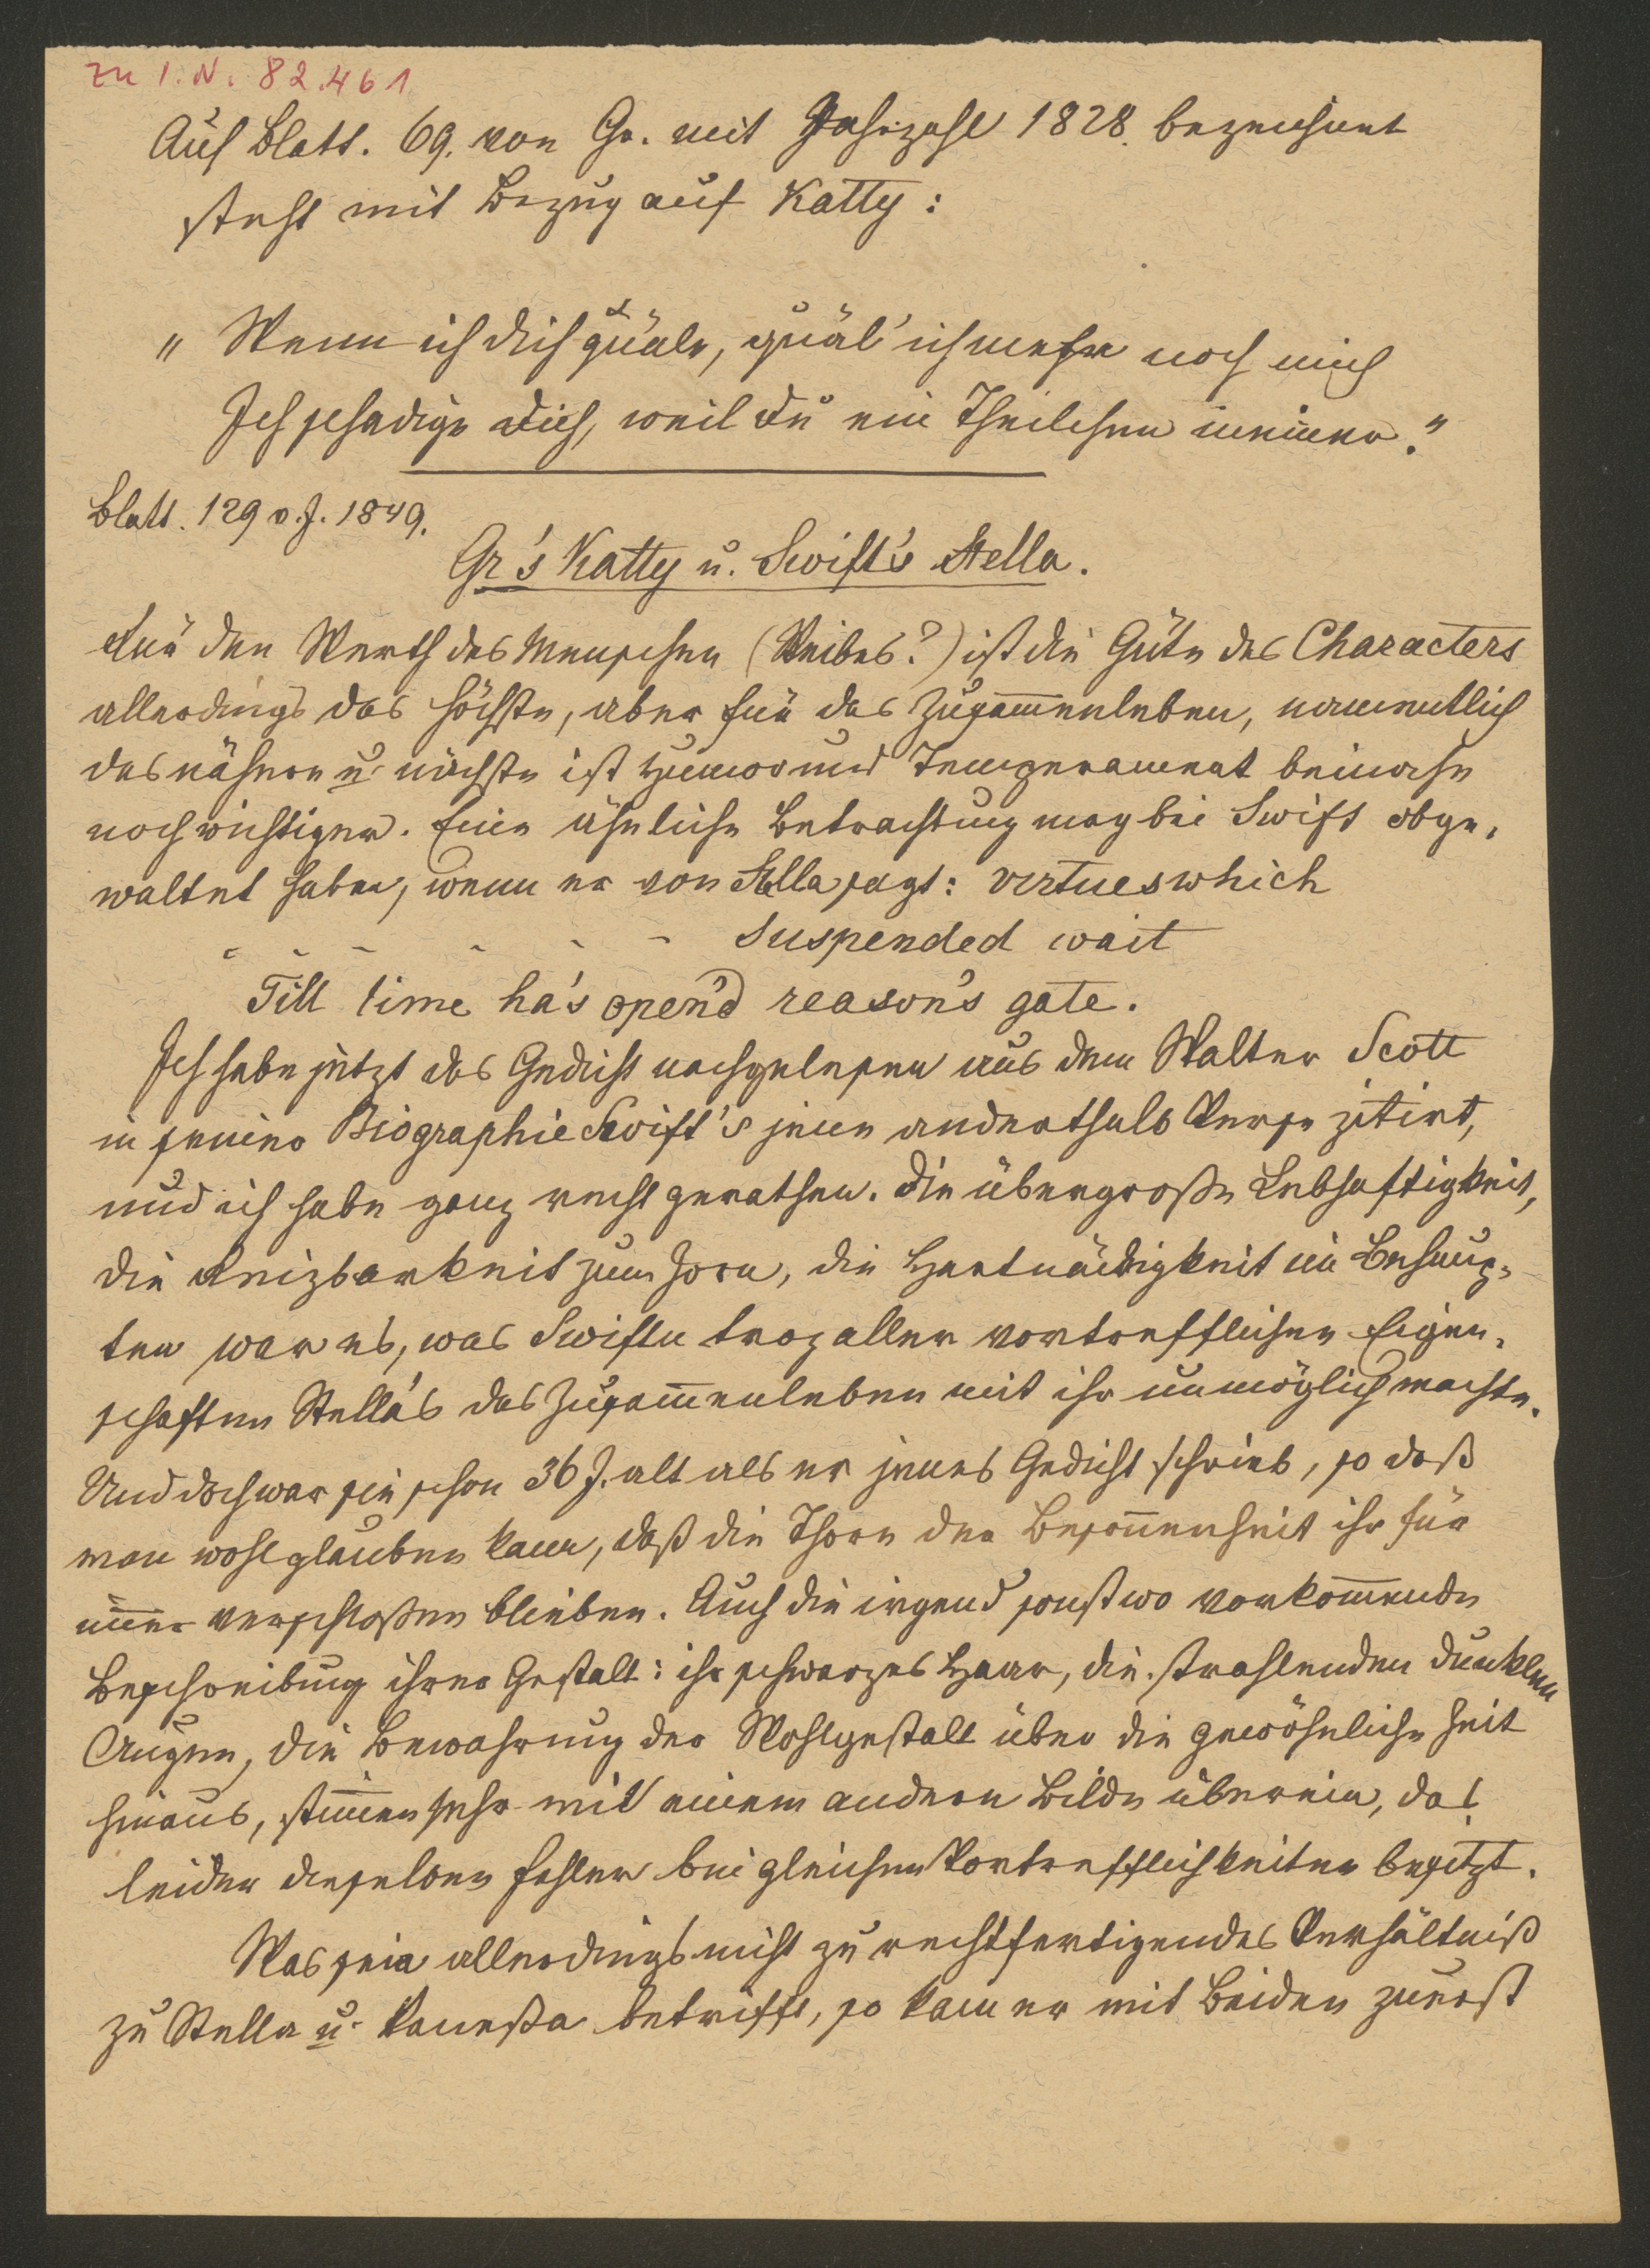 Zu I. N. 82.461
Auf Blatt. 69. von Gr. mit Jahrzahl 1828 bezeichnet
steht mit Bezug auf Katty:
„ Wenn ich dich quäle, quäl' ich mehr noch mich
Ich schädige dich, weil du ein Theilchen meiner."
Blatt. 129 v. J. 1849.
Gr's Katty u. Swift's Stella.
Für den Werth des Menschen (Weibes?) ist die Güte des Characters
allerdings das höchste, aber für das Zusam̅enleben, namentlich
das nähere u. nächste ist Humor und Temperament beinahe
noch wichtiger. Eine ähnliche Betrachtung mag bei Swift obge-
waltet haben, wenn er von Stella sagt: virtues which
- - - - - - suspended wait
Till time ha's open'd reason's gate.
Ich habe jetzt das Gedicht nachgelesen aus dem Walter Scott
in seiner Biographie Swift's jene anderthalb Verse zitirt,
und ich habe ganz recht gerathen. Die übergroße Lebhaftigkeit,
die Reizbarkeit zum Zorn, die Hartnäckigkeit im Behaup-
ten war es, was Swiften troz aller vortrefflichen Eigen-
schaften Stella's das Zusam̅enleben mit ihr unmöglich machte.
Und doch war sie schon 36 J. alt als er jenes Gedicht schrieb, so daß
man wohl glauben kann, daß die Thore der Beson̅enheit ihr für
im̅er verschloßen blieben. Auch die irgend sonstwo vorkom̅ende
Beschreibung ihrer Gestalt: ihr schwarzes Haar, die strahlenden dunklen
Augen, die Bewahrung der Wohlgestalt über die gewöhnliche Zeit
hinaus, stim̅en sehr mit einem andern Bilde überein, das
leider dieselben Fehler bei gleichen Vortrefflichkeiten besitzt.
Was sein allerdings nicht zu rechtfertigendes Verhältniß
zu Stella u. Vaneßa betrifft, so kam er mit Beiden zuerst